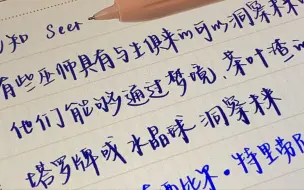 知 Seer
有些巫师具有与生俱来的可以洞察未来
他们能够通过梦境、茶叶渣
塔罗牌或水晶球 洞察未来
西比尔·特里劳